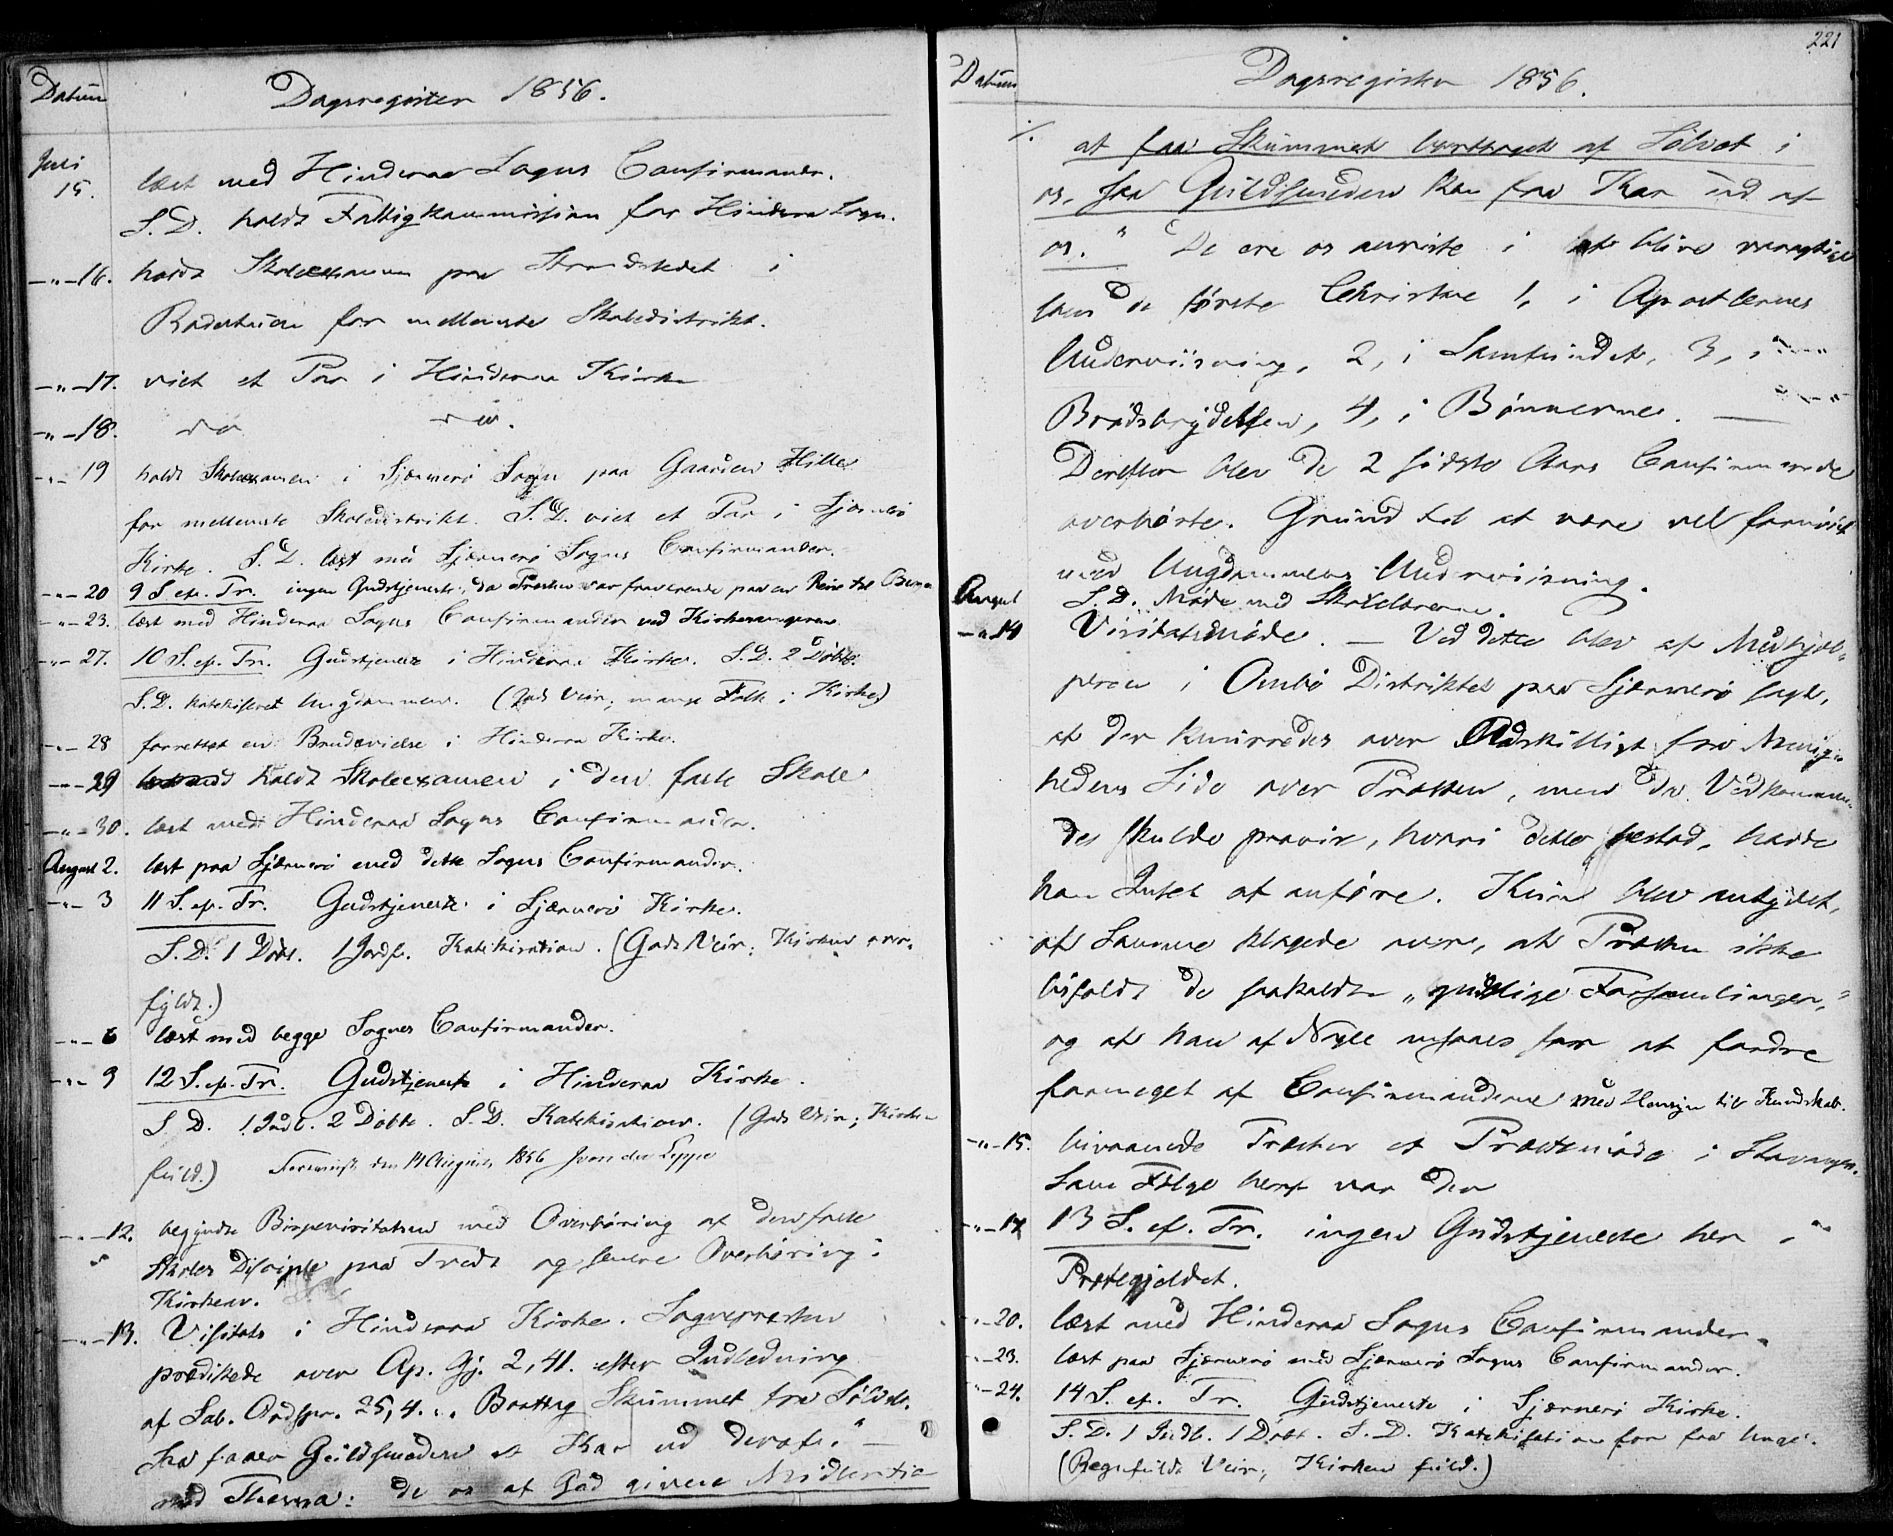 Datum
Dagsregister 1856.
Juli
15. læst med Hinderaa Sogns Confirmander.
S. D. holdt Fattigkommission for Hinderaa Sogn.
-"-16. holdt Skoleexamen paa Strandstedet i
for mellemste Skoledistrikt.
-"-17. viet et Par i Hinderaa Kirke
-"-18. do do.
-"-19 holdt Skoleexamen i Sjærnerö Sogn paa Gaarden Hille
for mellemste Skoledistrikt. S. D. viet et Par i Sjærnerö
Kirke. S. D. læst med Sjærnerö Sogns Confirmander.
-"-20 9 S. ef. Tr. ingen Gudstjeneste, da Præsten var fraværende paa en Reise til
-"-23. læst med Hinderaa Sogns Confirmander ved Kirkesangeren.
-"-27. 10 S. ef. Tr. Gudstjeneste i Hinderaa Kirke. S. D. 2 Döbte.
S. D. katekiseret Ungdommen. (Godt Veir; mange Folk i Kirke)
-"-28 forrettet en Brudevielse i Hinderaa Kirke.
-"-29 holdt Skoleexamen i den faste Skole
-"-30. læst med Hinderaa Sogns Confirmander.
August 2. læst paa Sjærnerö med dette Sogns Confirmander.
-"-3 11 S. ef. Tr. Gudstjeneste i Sjærnerö Kirke.
S. D. 1 Döbt. 1 Jordf. Katekisation. (Godt Veir; Kirken over-
fyldt.)
-"-6 læst med begge Sognes Confirmander.
-"-9 12 S. ef. Tr. Gudstjeneste i Hinderaa Kirke.
S. D. 1 Indl. 2 Döbte. S. D. Katekisation. (Godt Veir; Kirken
fuld.) den 14 August 1856
-"-12. begyndte Bispevisitatsen med Overhöring af den faste
Skoles Disciple paa Tredt og senere Overhöring i
Kirken.
-"-13. Visitats i Hinderaa Kirke. Sognepresten
prædikede over Ap. Gj. 2,41. efter Indledning
af Sal. Ordspr. 25,4. "Borttag Skummet fra Sölvet,
saa faaer Guldsmeden et Kar ud deraf." —
med Thema: de os af Gud givne Midler til

221
Datum
Dagsregister 1856.
·/. at faa Skummet borttaget af Sölvet i
os, saa Guldsmeden kan faa Kar ud af
os." De ere os anviste i at blive
som de förste Christne 1, i Apostlernes
Underviisning, 2, i Samfundet, 3, i
Brödsbrydelsen, 4, i Bönnerne. —
Derefter blev de 2 sidste Aars Confirmerede
overhörte. Grund til at være vel fornöiet
med Ungdommens Underviisning.
S. D. Möde med Skolelærerne.
August
-"-14 Visitatsmöde. — Ved dette blev af Medhjæl-
peren i Ombö Distriktet paa Sjærnerö sagt,
at der knurredes over Adskilligt fra Menig-
hedens Side over Præsten, men da Vedkommen-
de skulde præcis, hvori dette bestod, havde
han Intet at anföre. Kun blev antydet,
at Samme klagede over, at Præsten ikke
bifaldt de saakaldte "gudelige Forsamlinger,"
og at han af Nogle ansaaes for at fordre
formeget af Confirmanderne med Hensyn til Kundskab.
-"-15. bivaanede Præsten et Præstemöde i Stavanger.
Som Fölge heraf var den
-"-17 13 S. ef. Tr. ingen Gudstjeneste her i
Præstegjeldet.
-"-20. læst med Hinderaa Sogns Confirmander.
-"-23. læst paa Sjærnerö med Sjærnerö Sogns Confirmander.
-"-24. 14 S. ef. Tr. Gudstjeneste i Sjærnerö Kirke.
S. D. 1 Indl. 1 Döbt. S. D. Katekisation for faa Unge.
(Regnfuldt Veir; Kirken fuld.)